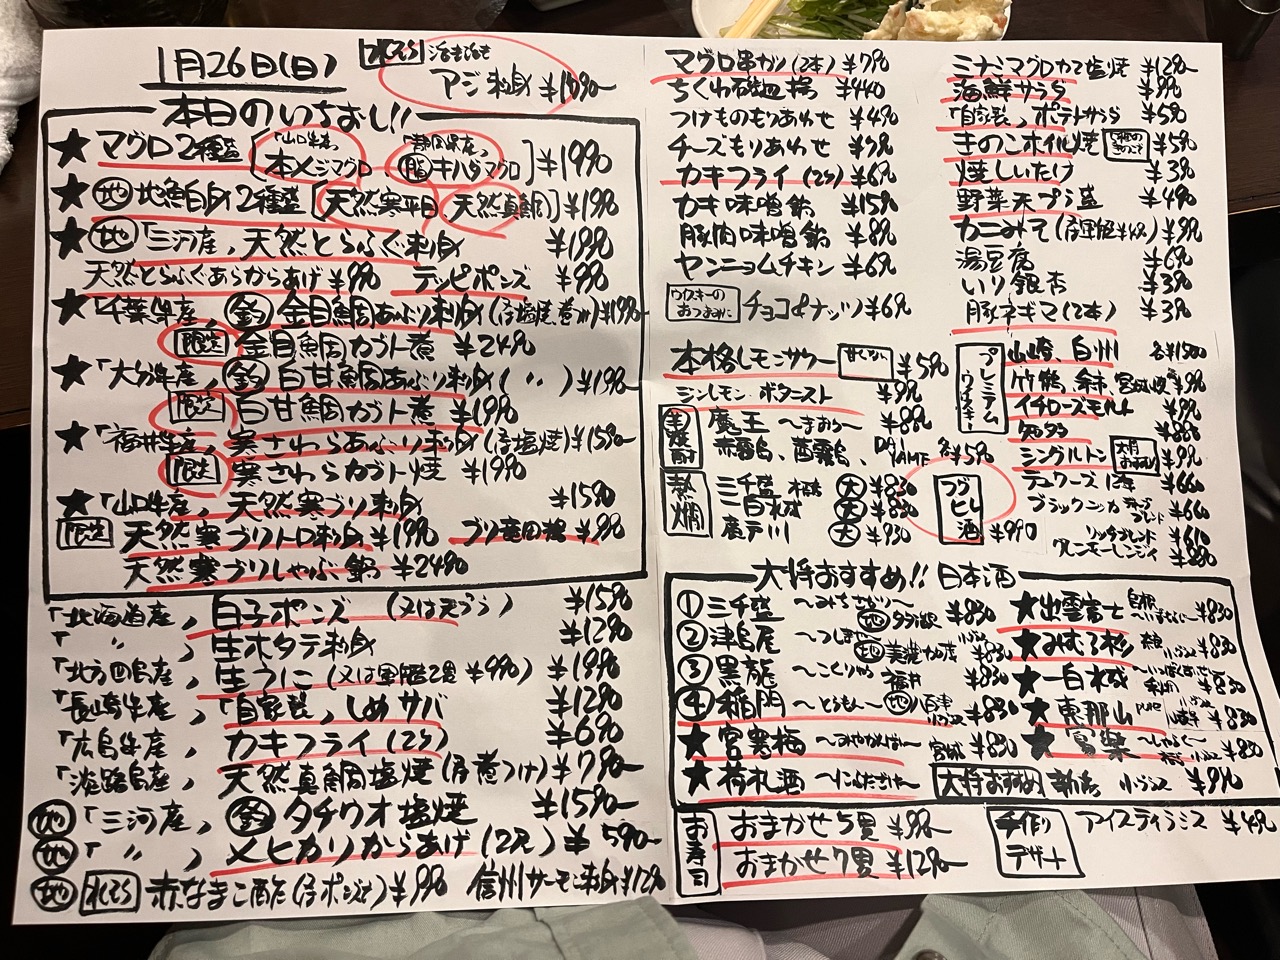 1月26日(日)
アジ刺身 ¥1690-
本日のいちおし!!
★マグロ2種盛 「山口県産」本メジマグロ 「静岡県産」脂キハダマグロ ¥1990
★地 地魚白身2種盛 天然寒平目、天然真鯛 ¥1990
★地「三河産」天然とらふぐ刺身 ¥1990
天然とらふぐあらからあげ ¥990 テッピポンズ ¥990
★「千葉県産」釣 金目鯛あぶり刺身
限定 金目鯛カブト煮 ¥2490
★「大分県産」釣 白甘鯛あぶり刺身(〃)¥1990
限定 白甘鯛カブト煮 ¥1990
★「福井県産」寒さわらあぶり刺身(or塩焼)¥1590
限定 寒さわらカブト焼 ¥1990
★「山口県産」天然寒ブリ刺身 ¥1590
限定 天然寒ブリトロ刺身 ¥1990 ブリ竜田揚 ¥990
天然寒ブリしゃぶ鍋 ¥2490
「北海道産」白子ポンズ(又は天ぷら)¥1590
「〃」生ホタテ刺身 ¥1290
「北方四島産」生うに(又は軍艦2貫 ¥990)¥1990
「長崎県産」「自家製」しめサバ ¥1290
「広島県産」カキフライ(2ケ)¥690
「淡路島産」天然真鯛塩焼(or煮つけ)¥790
地「三河産」釣 タチウオ塩焼 ¥1590-
地「〃」メヒカリからあげ(2尾)¥590-
地 赤なまこ酢(orポンズ)¥990 信州サーモン刺身 ¥1290
マグロ串カツ(2本)¥790
ちくわ磯辺揚 ¥440
つけものもりあわせ ¥490
チーズもりあわせ ¥790
カキフライ(2ケ)¥690
カキ味噌鍋 ¥1590
豚肉味噌鍋 ¥890
ヤンニョムチキン ¥690
ウイスキーのおつまみに チョコ&ナッツ ¥690
ミナミマグロカマ塩焼 ¥1290
海鮮サラダ ¥990
「自家製」ポテトサラダ ¥590
きのこホイル焼 ¥590
焼しいたけ ¥390
野菜天プラ盛 ¥490
カニみそ ¥990
湯豆腐 ¥690
いり銀杏 ¥390
豚ネギマ(2本)¥390
本格レモンサワー 甘くない ¥590
ジンレモン・ボタニスト ¥990
芋焼酎 魔王 〜まおう〜 ¥880
赤霧島、茜霧島、DAIYAME 各¥590
熱燗 三千盛 大 ¥830
白木成 大 ¥830
鷹戸川 大 ¥930
フグヒレ酒 ¥990
プレミアムウイスキー 山崎、白州 各¥1500
竹鶴、余市、宮城峡 ¥990
イチローズモルト ¥990
知多 ¥880
シングルトン 大将おすすめ ¥990
デュワーズ 12年 ¥660
ブラックニッカ ディープブレンド ¥660
リッチブレンド ¥610
大将おすすめ!! 日本酒
① 三千盛 〜みちさかり〜 地 多治見 ¥830
② 津島屋 〜つしまや〜 地 美濃加茂 ¥830
③ 黒龍 〜こくりゅう〜 福井 ¥830
④ 稲門 〜とうもん〜 地 ¥830
★宮寒梅 〜みやかんばい〜 宮城 ¥830
★荷札酒 〜にふだざけ〜 大将おすすめ 新潟 ¥990
★出雲富士 島根 〜いずもふじ〜 ¥830
★みむろ杉 奈良 ¥830
★一白水成 〜いっぱくすいせい〜 秋田 ¥830
★恵那山 ¥830
★寫楽 〜しゃらく〜 ¥880
お寿司 おまかせ5貫 ¥990
おまかせ7貫 ¥1290-
手作りデザート アイスティラミス ¥490